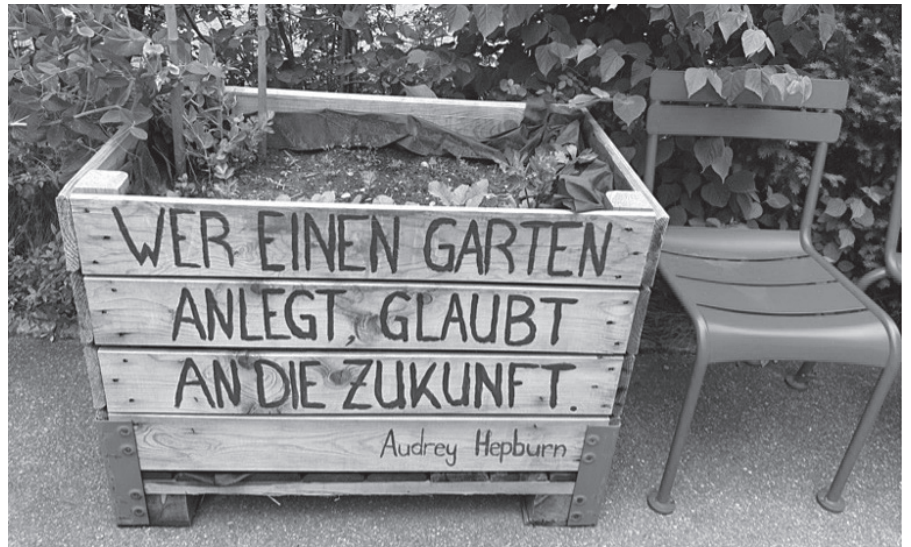 WER EINEN GARTEN
ANLEGT, GLAUBT
AN DIE ZUKUNFT.
Audrey Hepburn